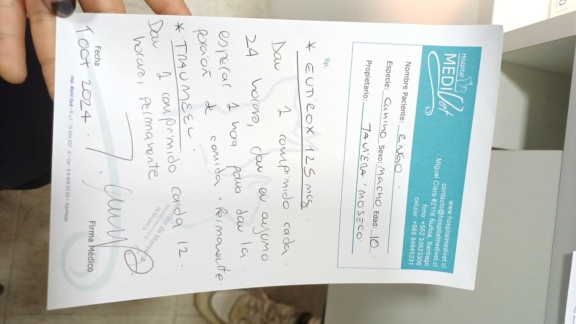 Hospital
MEDiVet
www.hospitalmedivet.cl
contacto@hospitalmedivet.cl
Miguel Claro #2118 Ñuñoa, Santiago
Nombre Paciente: RINGO.
Especie: Canino Sexo: Macho Edad: 10
Propietario: JAVIERA MOSECO.
Rp.
* EUTIROX 125 mcg
Dar 1 comprimido cada
24 horas, dar en ayuno
esperar 1 hora para dar la
comida. Permanente
* TRAUMEEL.
Dar 1 comprimido cada 12
horas, permanente
1 OCT 2024.
Fecha
Firma Médico